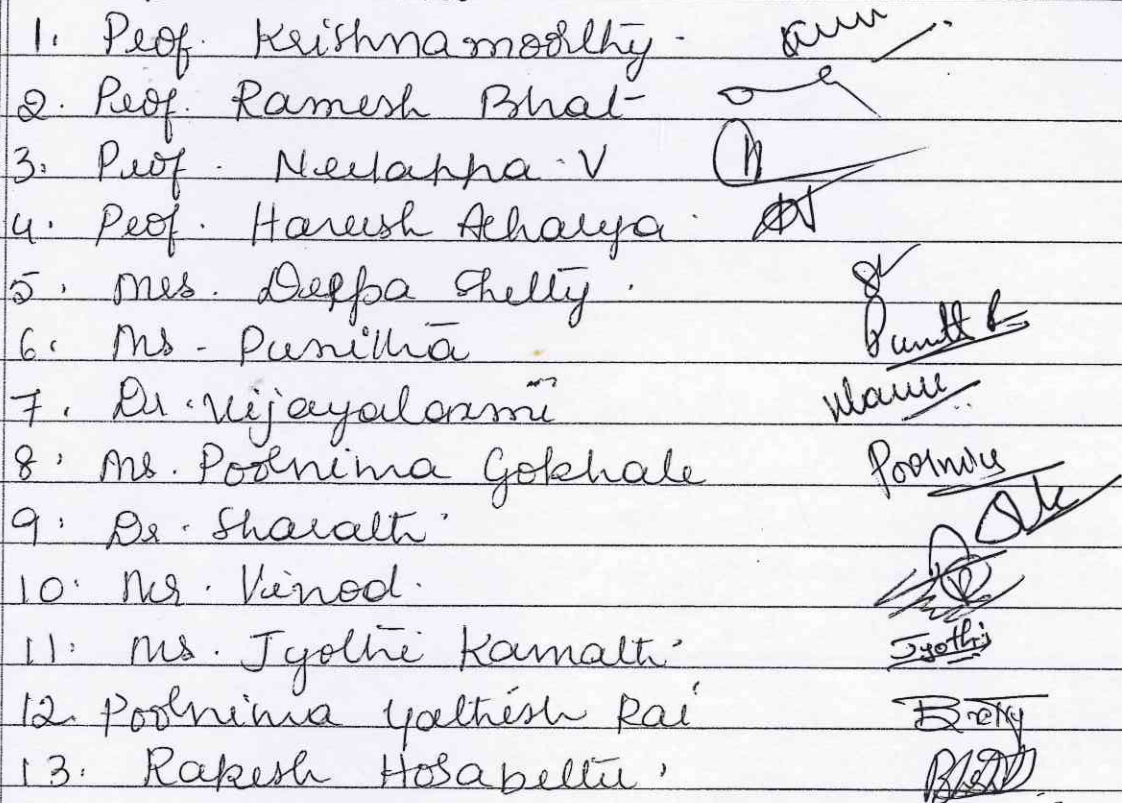 1. Prof. Krishnamoorthy.
2. Prof. Ramesh Bhat
3. Prof. Neelappa. V
4. Prof. Hareesh Acharya.
5. Mrs. Deepa Shetty.
6. Ms. Punitha
7. Dr. Vijayalaxmi
8. Ms. Poornima Gokhale Poornima
9. Dr. Sharath
10. Mr. Vinod.
11. Ms. Jyothi Kamath Jyothi
12. Poornima Yathish Rai
13. Rakesh Hosabettu